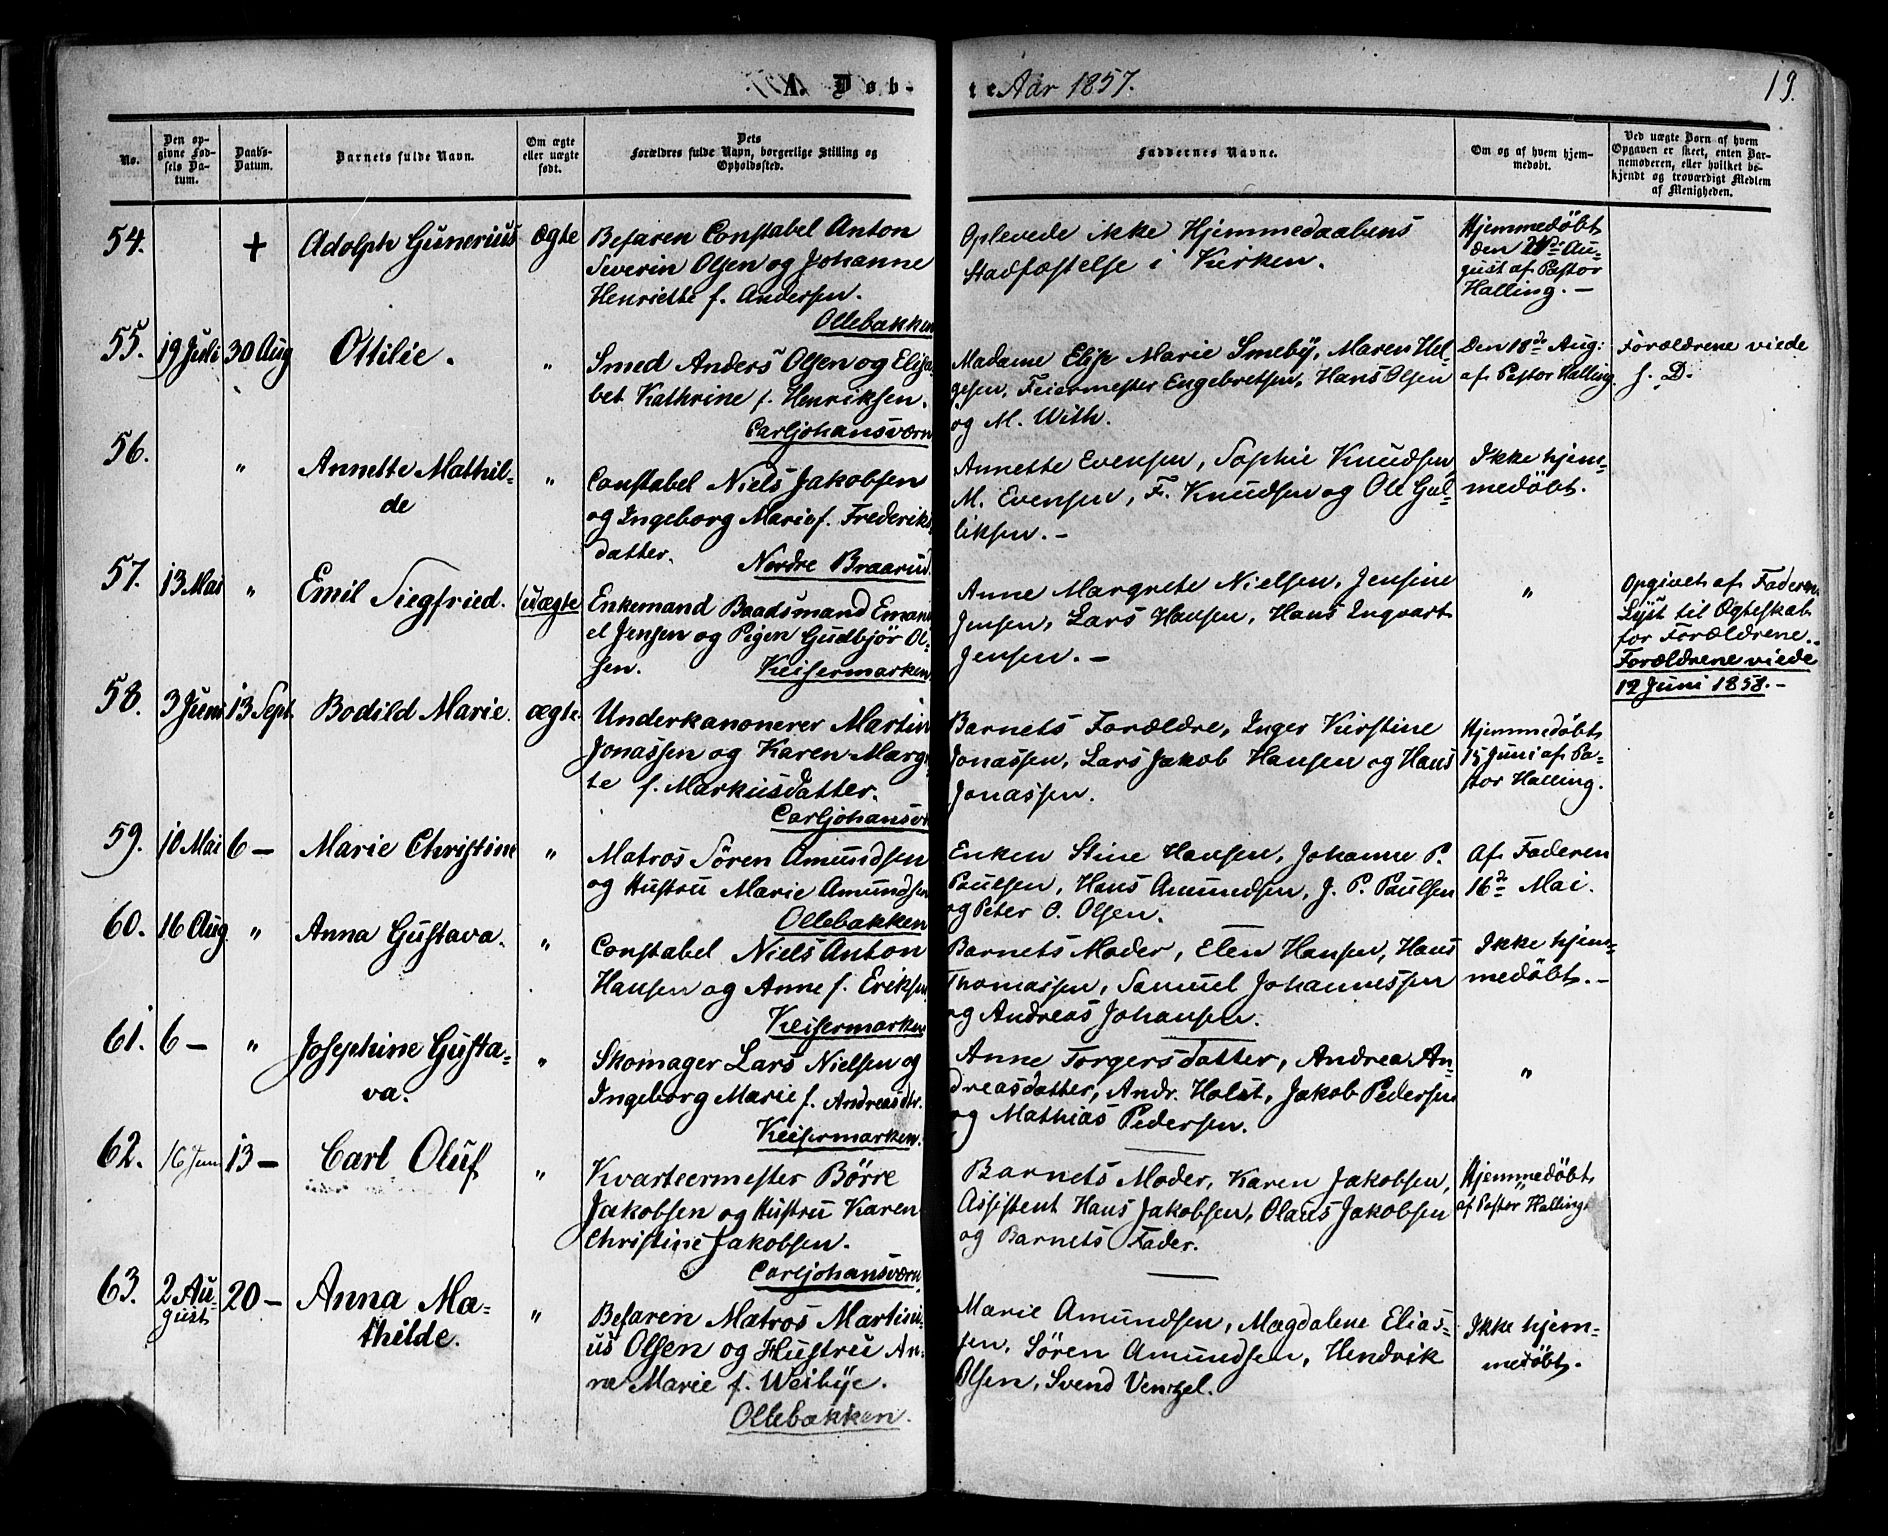 A. Døb-
te Aar 1857.
19.
No.
Den op-
givne Fød-
sels Da-
tum.
Daabs-
Datum.
Barnets fulde Navn.
Om ægte
eller uægte
født.
Dets
Forældres fulde Navn, borgerlige Stilling og
Opholdssted.
Faddernes Navne.
Om og af hvem hjem-
medøbt.
Ved uægte Børn af hvem
Opgaven er skeet, enten Bar-
nemoderen, eller hvilket be-
kjendt og troværdigt Medlem
af Menigheden.
54.
+
Adolph Gunerius
ægte
Befaren Constabel Anton
Severin Olsen og Johanne
Henriette f. Andersen.
Ollebakken
Oplevede ikke Hjemmedaabens
Stadfæstelse i Kirken.
Hjemmedøbt
den Au-
gust af Pastor
Halling. –
55.
19 Juli
30 Aug
Ottilie.
"
Smed Anders Olsen og Elisa-
bet Kathrine f. Henriksen.
Carljohansværn
Madame Elise Marie Smeby, Maren Hel-
gesen, Feiermester Engebretsen, Hans Olsen
og M. With.
Den 18de Aug:
af Pastor Halling.
Forældrene viede
s. D.
56.
"
Annette Mathil-
de
"
Constabel Niels Jakobsen
og Ingeborg Marie f. Frederiks
datter.
Nordre Braarud.
Annette Evensen, Sophie Knudsen
M. Evensen, F. Knudsen og Ole Gul-
liksen. –
Ikke hjem-
medøbt.
57.
13 Mai
"
Emil Siegfried.
(uægte
Enkemand Baadsmand Emanu
el Jensen og Pigen Gudbjør Ol-
sen.
Keisermarken
Anne Margrete Nielsen, Jensine
Jensen, Lars Hansen, Hans Ingvart
Jensen. –
"
Opgivet af Faderen.
Lyst til Ægteskab
for Forældrene.
Forældrene viede
12 Juni 1858. –
58.
3 Juni
13 Sept.
Bodild Marie.
ægte
Underkanonerer Martin
Jonassen og Karen Margr
te f. Markusdatter.
Carljohansvæ
Barnets Forældre, Inger Kirstine
Jonassen, Lars Jakob Hansen og Hans
Jonassen.
Hjemmedøbt
15 Juni af Pa-
stor Halling.
59.
10 Mai
6 –
Marie Christine
"
Matros Søren Amundsen
og Hustru Marie Amundsen
Ollebakken
Enken Stine Hansen, Johanne P.
Paulsen, Hans Amundsen, J. P. Paulsen
og Peter O. Olsen.
Af Faderen
16de Mai.
60.
16 Aug.
"
Anna Gustava.
"
Constabel Niels Anton
Hansen og Anne f. Eriksen
Keisermarken
Barnets Moder, Elen Hansen, Hans
Thomassen, Samuel Johannessen
og Andreas Johansen.
Ikke hjem-
medøbt. –
61.
6 –
"
Josephine Gusta-
va.
"
Skomager Lars Nielsen og
Ingeborg Marie f. Andreasdtr.
Keisermarken.
Anne Torgersdatter, Andrea An-
dreasdatter, Andr. Holst, Jakob Pedersen
og Mathias Pedersen.
"
62.
16 Juni
13 –
Carl Oluf
"
Kvarteermester Børre
Jakobsen og Hustru Karen
Christine Jakobsen.
Carljohansværn.
Barnets Moder, Karen Jakobsen,
Assistent Hans Jakobsen, Olaus Jakobsen
og Barnets Fader.
Hjemmedøbt
af Pastor Halling
63.
2 Au-
gust
20 –
Anna Ma-
thilde.
"
Befaren Matros Martini-
us Olsen og Hustru An-
ne Marie f. Weibye.
Ollebakken.
Marie Amundsen, Magdalene Elias-
sen, Søren Amundsen, Hendrik
Olsen, Svend Ventzel.
Ikke hjem-
medøbt.